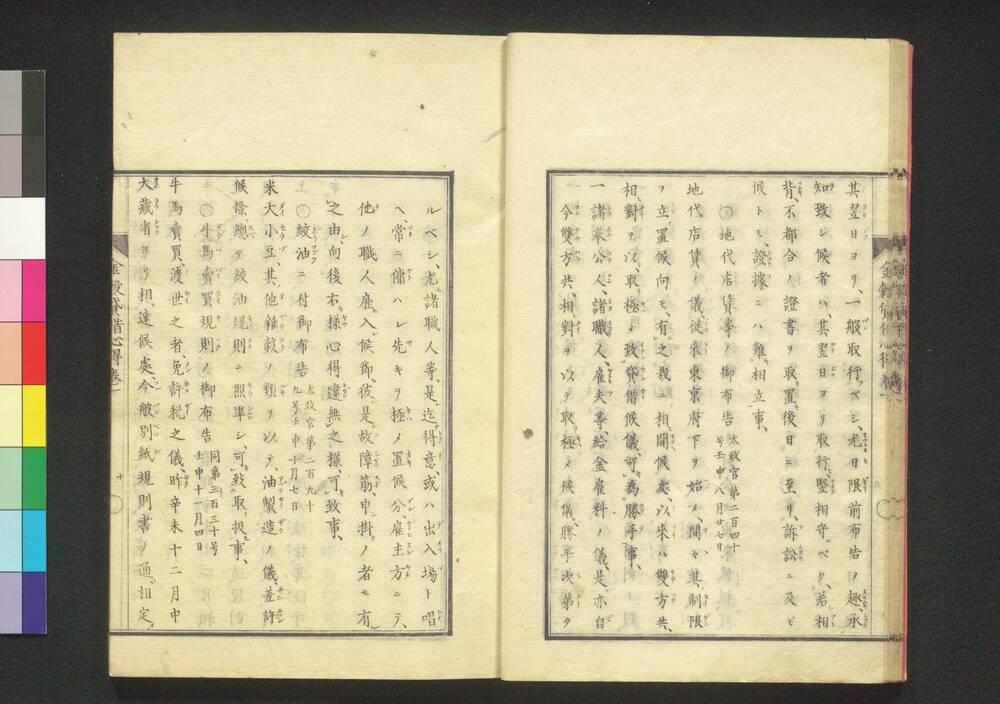 其翌日ヨリ、一般取行ベシ、尤日限前布告ノ趣、承
知致シ候者ハ、其翌日ヨリ取行、堅相守ベク、若相
背、不都合ノ證書ヲ取、置後日ニ至リ訴訟ニ及ビ
候トモ、證據ニハ難、相立事、
〇地代店賃等ノ御布告 太政官第二百四十
号壬申八月廿七日
地代店賃ノ儀、從來東京府下ヲ始メ間々、其、制限
ヲ立、置候向モ、有之哉ニ相聞候處、以來ハ雙方共、
相對ヲ以、取、極メ致、貸借候儀、可、為、勝手事、
一諸奉公人、諸職人雇夫等、給金雇料ノ儀、是亦自
今雙方共、相、對ヲ以テ取、極メ候儀、勝手次第タ
ルベシ、尤諸職人等、是迄得意、或ハ出入場ト唱
ヘ、常ニ傭ハレ先キヲ極メ置候分雇主方ニテ、
他ノ職人雇入候節、彼是故障筋、申掛ケノ者モ有
之由、向後右様心得違無之様、可、致事、
〇絞油ニ付御布告 太政官第二百九十
九号壬申十月七日
米大小豆、其他雜穀ノ類ヲ以テ、油製造ノ儀、差許
候條、總テ絞油規則ニ照準シ、可致取扱事、
〇牛馬賣買規則ノ御布告 同第三百三十号
壬申十一月四日
牛馬賣買、渡世之者、免許税之儀、昨辛未十二月中
大藏省ヨリ相、達候處、今般別紙規則書ノ通、相定、
金穀貸借心得卷一
十